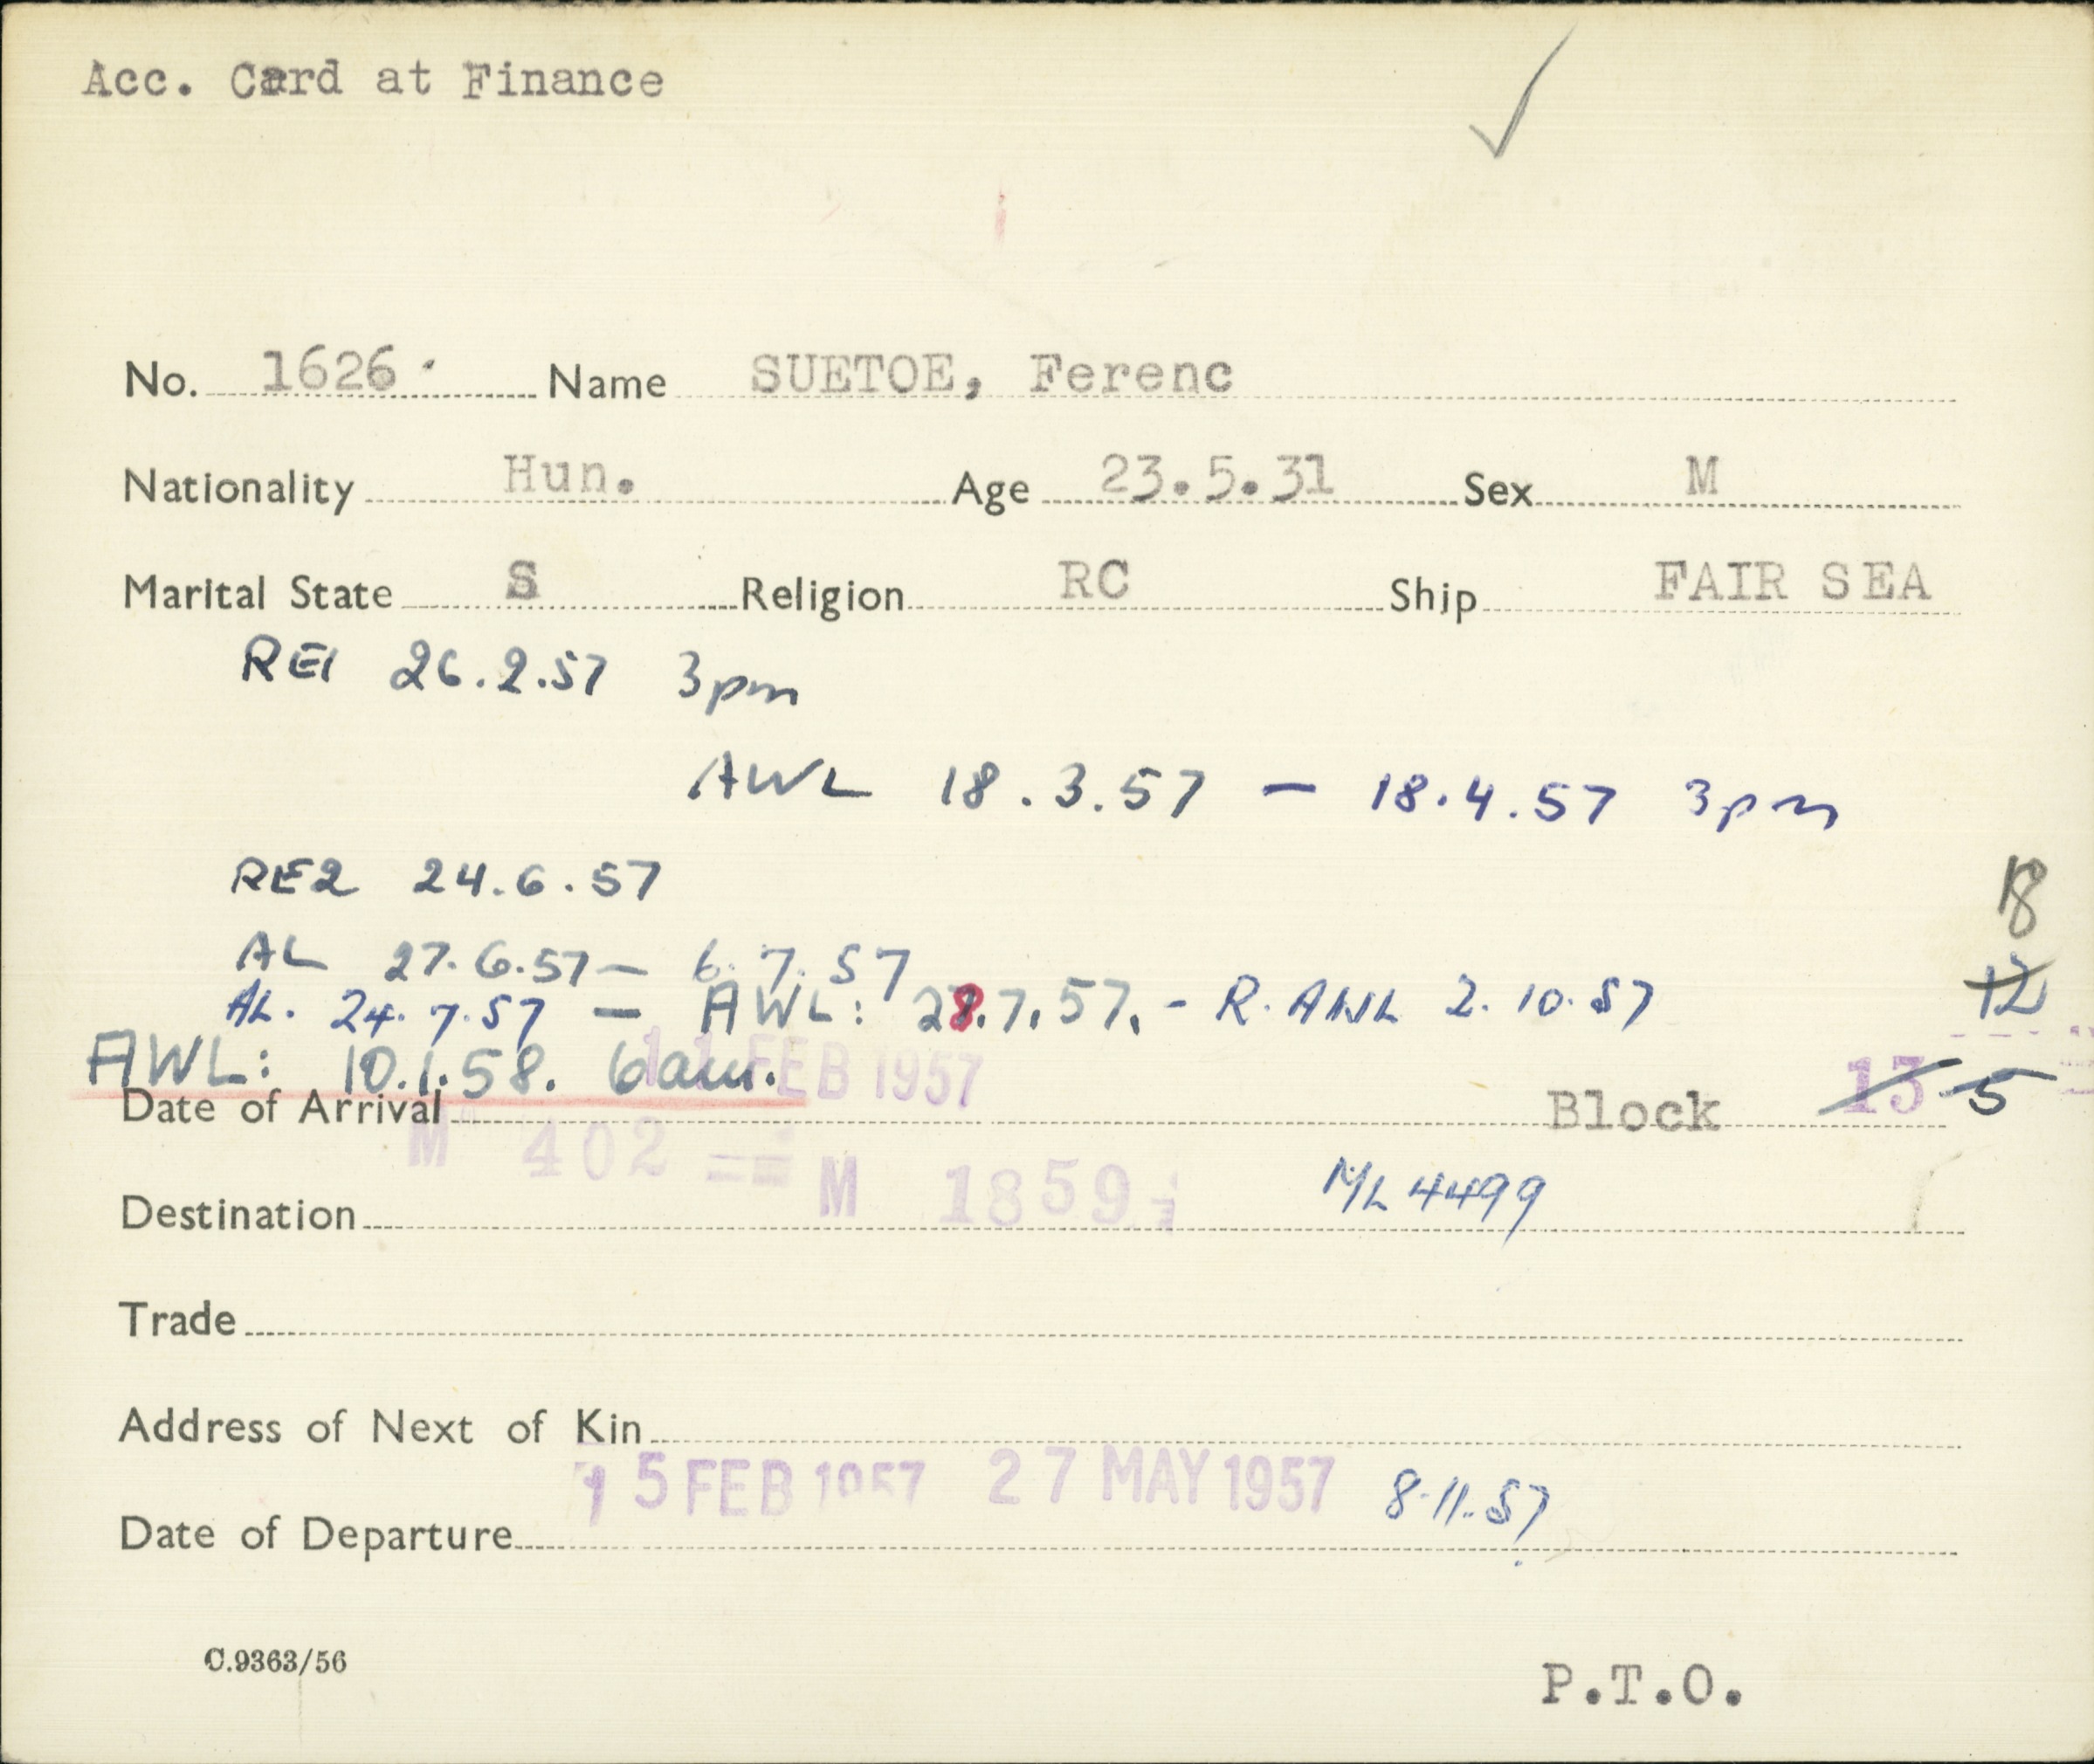 Acc. Card at Finance
No. 1626 Name SUETOE, Ferenc
Nationality Hun. Age 23.5.31 Sex M
Marital State S Religion RC Ship FAIR SEA
RE1 26.2.57 3pm
AWL 18.3.57 — 18.4.57 3pm
RE2 24.6.57
18
AL 27.6.57 — 6.7.57
12
AL. 24.7.57 — AWL: 28.7.57. - R. AWL 2.10.57
AWL: 10.1.58. 6am.
11 FEB 1957
Date of Arrival Block 13 5
M 402 M 1859
ML 4499
Destination
Trade
Address of Next of Kin
15 FEB 1957 27 MAY 1957 8.11.57
Date of Departure
C.9363/56
P.T.O.